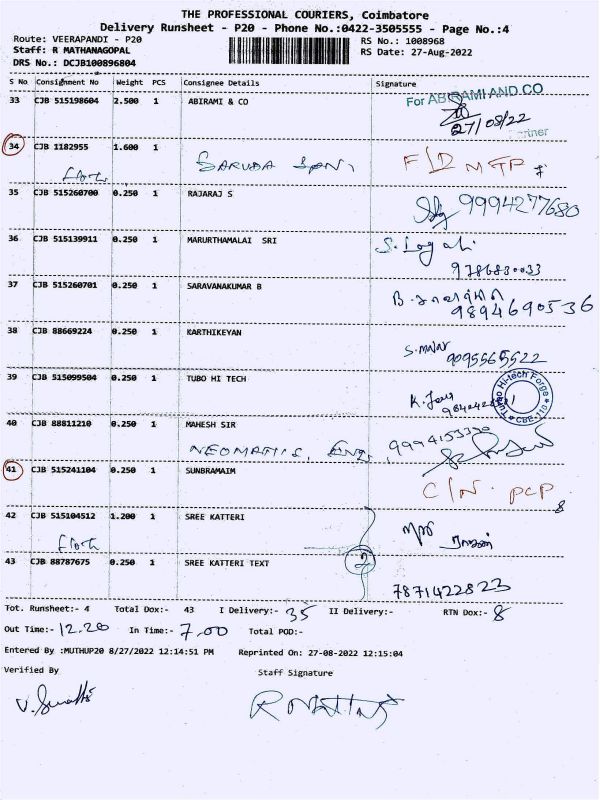 THE PROFESSIONAL COURIERS, Coimbatore
Delivery Runsheet - P20 - Phone No.:0422-3505555 - Page No.:4
Route: VEERAPANDI - P20
RS No.: 1008968
Staff: R MATHANAGOPAL
RS Date: 27-Aug-2022
DRS No.: DCJB100896804
S No Consignment No Weight PCS Consignee Details Signature
33 CJB 515198604 2.500 1 ABIRAMI & CO For ABIRAMI AND CO
27/08/22
34 CJB 1182955 1.600 1 F/D MTP
35 CJB 515260700 0.250 1 RAJARAJ S 9994277680
36 CJB 515139911 0.250 1 MARURTHAMALAI SRI
9786830033
37 CJB 515260701 0.250 1 SARAVANAKUMAR B
9894690536
38 CJB 88669224 0.250 1 KARTHIKEYAN
9095565522
39 CJB 515099504 0.250 1 TUBO HI TECH
Tubo Hi-tech Forge
40 CJB 88811210 0.250 1 MAHESH SIR
9994153330
41 CJB 515241104 0.250 1 SUNBRAMAIM C/N. PCP
42 CJB 515104512 1.200 1 SREE KATTERI
43 CJB 88787675 0.250 1 SREE KATTERI TEXT 2
7871422823
Tot. Runsheet:- 4 Total Dox:- 43 I Delivery:- 35 II Delivery:- RTN Dox:- 8
Out Time:- 12.20 In Time:- 7.00 Total POD:-
Entered By :MUTHUP20 8/27/2022 12:14:51 PM Reprinted On: 27-08-2022 12:15:04
Verified By Staff Signature